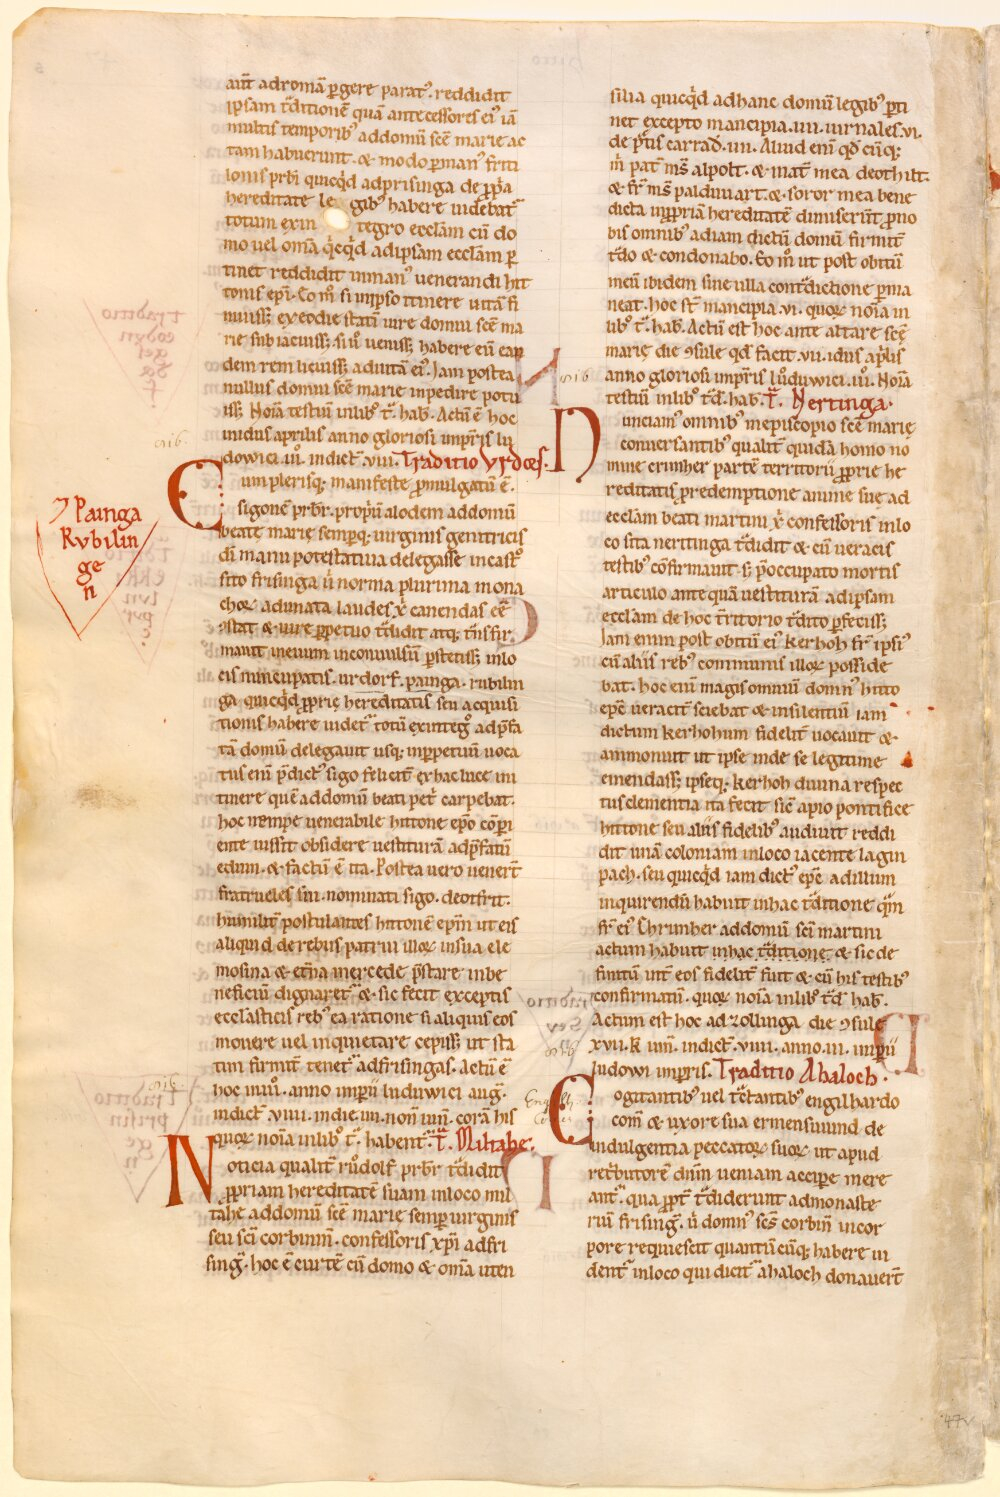 aut̄ ad romā ꝑgere parat᷒. reddidit
ipsam t̄ditionē quā antecessores ei᷒ iā
multis temporib᷒ ad domū scē marie ac
tam habuerunt. & modo ꝑman᷒ friti
lonis prƀi quicq̄d ad prisinga de ꝓp̄a
hereditate le gib᷒ habere uidebat᷒
totum ex in tegro ecclam cū do
mo uel om̄a q̇cq̇d ad ipsam ecclam ꝑ
tinet reddidit in man᷒ uenerandi hit
tonis epı̄. Eo m̊ si in ipso itinere uitā fi
niuiss; ex eo die statī iure domui scē ma
rie subiacuiss; si ů uenıss; habere eū ean
dem rem licuiss; ad uitā ei᷒. Jam postea
nullus domui scē marie inpedire potu
iss; Noı̄a testiū in lib᷒ t̄. hab. Actū ē hoc
iiii idus aprilis anno gloriosi inpr̄is lu
dowici .iii̊. indict̄. viii. Traditio Vrdoes.
Cum plerisq; manifeste ꝓmulgatū ē.
sigonē prƀr. propriū alodem ad domū
beatę marię semp̄q; uirginis genitricis
dı̄ manu potestatiua delegasse in cast᷒
sito frisinga ů norma plurima mona
choꝝ adunata laudes x̄ canendas eē
ꝯstat & iure ꝑpetuo t̄didit atq; t̄nsfir
mauit in euum inconuulsū ꝑstetiss; in lo
cis nuncupatis. urdorf. painga. rubilin
ga quicq̄d ꝓprię hereditatis seu acquisi
tionis habere uidet᷒ totū ex integ᷒ ad p̄fa
tā domū delegauit usq; in ꝑpetuū uoca
tus eni p̄dict᷒ sigo felicit̄ ex hac luce in
itinere quē ad domū beati pet᷒ carpebat.
hoc nempe uenerabile hittone ep̄o cōꝑi
ente iussit obsidere uestiturā ad p̄fatū
ędum. & factū ē ita. Postea uero uener̄t
fratrueles sui. nominati sigo. deotfrit.
humilit̄ postulantes hittonē ep̄m ut eis
aliquid de rebus patrui illoꝝ in sua ele
mosina & et̄na mercede p̄stare in be
neficiū dignaret᷒. & sic fecit exceptis
ecclasticis reb᷒ ea ratione si aliquis eos
monere uel inquietare cepiss; ut sta
tim firmit̄ tenet᷒ ad frisingas. Actū ē
hoc in iiii̊. anno inp̄ii luduwici auḡ.
indict̄. viiii. in die iiii. non̄ iun̄. corā his
quoꝝ noı̄a in lib᷒ t̄. habent᷒. T̄. Miltahe.
Noticia qualit̄ růdolf prƀr t̄didit
ꝓpriam hereditatē suam in loco mil
tahe ad domū scē marię semp uirginis
seu sc̄i corbiniani. confessoris xp̄i ad fri
sinḡ. hoc ē curtē cū domo & om̄a uten
ꝫ Painga
Rvbilin
ge
n
silia quicq̄d ad hanc domū legib᷒ ꝑti
net excepto mancipia .iiii. iurnales. vi.
de p̄tis carrad̄. iiii. Aliud eni q̄d cūq;
m̄ pat᷒ ms̄ alpolt. & mat᷒ mea deothilt.
& fr̄ ms̄ palduuart. & soror mea bene
dicta in ꝓpriā hereditatē dimiser̄t ꝓ no
bis omnib᷒ ad iam dictū domū firmit̄
t̄do & condonabo. Eo m̊ ut post obitū
meū ibidem sine ulla cont̄dictione ꝑma
neat. hoc st̄ mancipia. vi. quoꝝ noı̄a in
lib᷒ t̄. hab. Actū est hoc ante altare scę
marię die ꝯsule q̄d facit. vii. idus ap̄lis
anno gloriosi inpr̄is lůduwici. iii̊. Noı̄a
testiū in lib᷒ t̄d. hab. T̄. Nertinga.
Nunciam᷒ omnib᷒ in episcopio scē marię
conuersantib᷒ qualit̄ quidā homo no
mine crimher partē territorii ꝓprie he
reditatis ꝓ redemptione anime sue ad
ecclam beati martini x̄ confessoris in lo
co sita nertinga t̄didit & cū ueracis
testib᷒ cōfirmauit. s; p̄occupato mortis
articulo ante quā uestiturā ad ipsam
ecclam de hoc t̄ritorio t̄dito ꝑfeciss;
Jam enim post obitū ei᷒ Kerhoh fr̄ ipsi᷒
cū aliis reb᷒ communis illoꝝ posside
bat. hoc eni magis omniū domn᷒ hitto
ep̄c ueracit̄ sciebat & in silentiū iam
dictum kerhohum fidelit̄ uocauit &
ammonuit ut ipse inde se legitime
emendass; ipseq; kerhoh diuina respec
tus clementia ita fecit sic̄ a pio pontifice
hittone seu aliis fidelib᷒ audiuit reddi
dit unā coloniam in loco iacente lagin
pach. seu quicq̄d iam dict᷒ ep̄c ad illum
inquirendū habuit in hac t̄ditione q̄m
fr̄ ei᷒ Chrimher ad domū sc̄i martini
actum habuit in hac t̄ditione. & sic de
finitū int̄ eos fidelit̄ fuit & cū his testib᷒
confirmatū. quoꝝ noı̄a in lib᷒ t̄d hab.
Actum est hoc ad zollinga die ꝯsule
xvii. K iun̄. indict̄. viiii. anno. iii. inp̄ii
ludowi inpr̄is. Traditio Ahaloch.
Cogitantib᷒ uel t̄ctantib᷒ engilhardo
com̄ & uxore sua ermensuuind de
indulgentia peccatoꝝ suoꝝ ut apud
ret̄butorē dn̄m ueniam accipe mere
ant᷒. qua ꝓpt̄ t̄diderunt ad monaste
riū frisinḡ. ů domn᷒ sc̄s corbin̄ in cor
pore requiescit quantū cūq; habere ui
dent᷒ in loco qui dicit᷒ ahaloch donauer̄t
47v